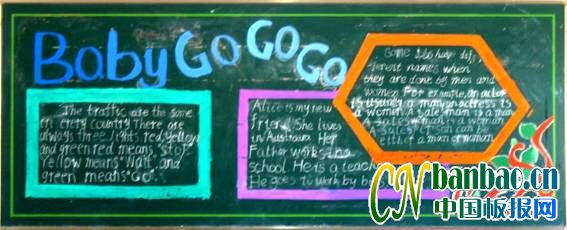 Baby Go Go Go
The traffic are the same
in every country. there are
always three lights red, yellow
and green red means "stop"
Yellow means "Wait" and
green means "Go".
Alice is my new
friend She lives
in Australia Her
Father works in a
school He is a teach
He goes to work by b
Some jobs have diff
erent names when
they are done by men and
women For example, an actor
is usually a man, an actress is
a women. A salesman is a man
a woman
A sales person can be
either a man or woman
CN banbao.cn
中国板报网